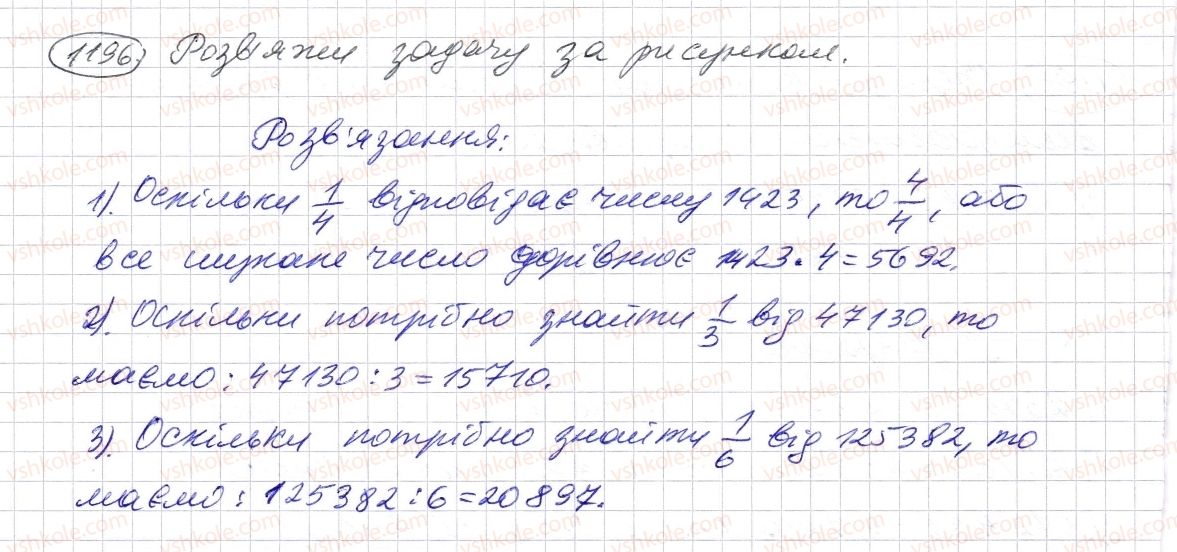 1196. Розв'яжи задачу за рисунком.
Розв'язання:
1). Оскільки 1/4 відповідає числу 1423, то 4/4, або
все шукане число дорівнює 1423·4=5692.
2). Оскільки потрібно знайти 1/3 від 47130, то
маємо: 47130:3=15710.
3). Оскільки потрібно знайти 1/6 від 125382, то
маємо: 125382:6=20897.